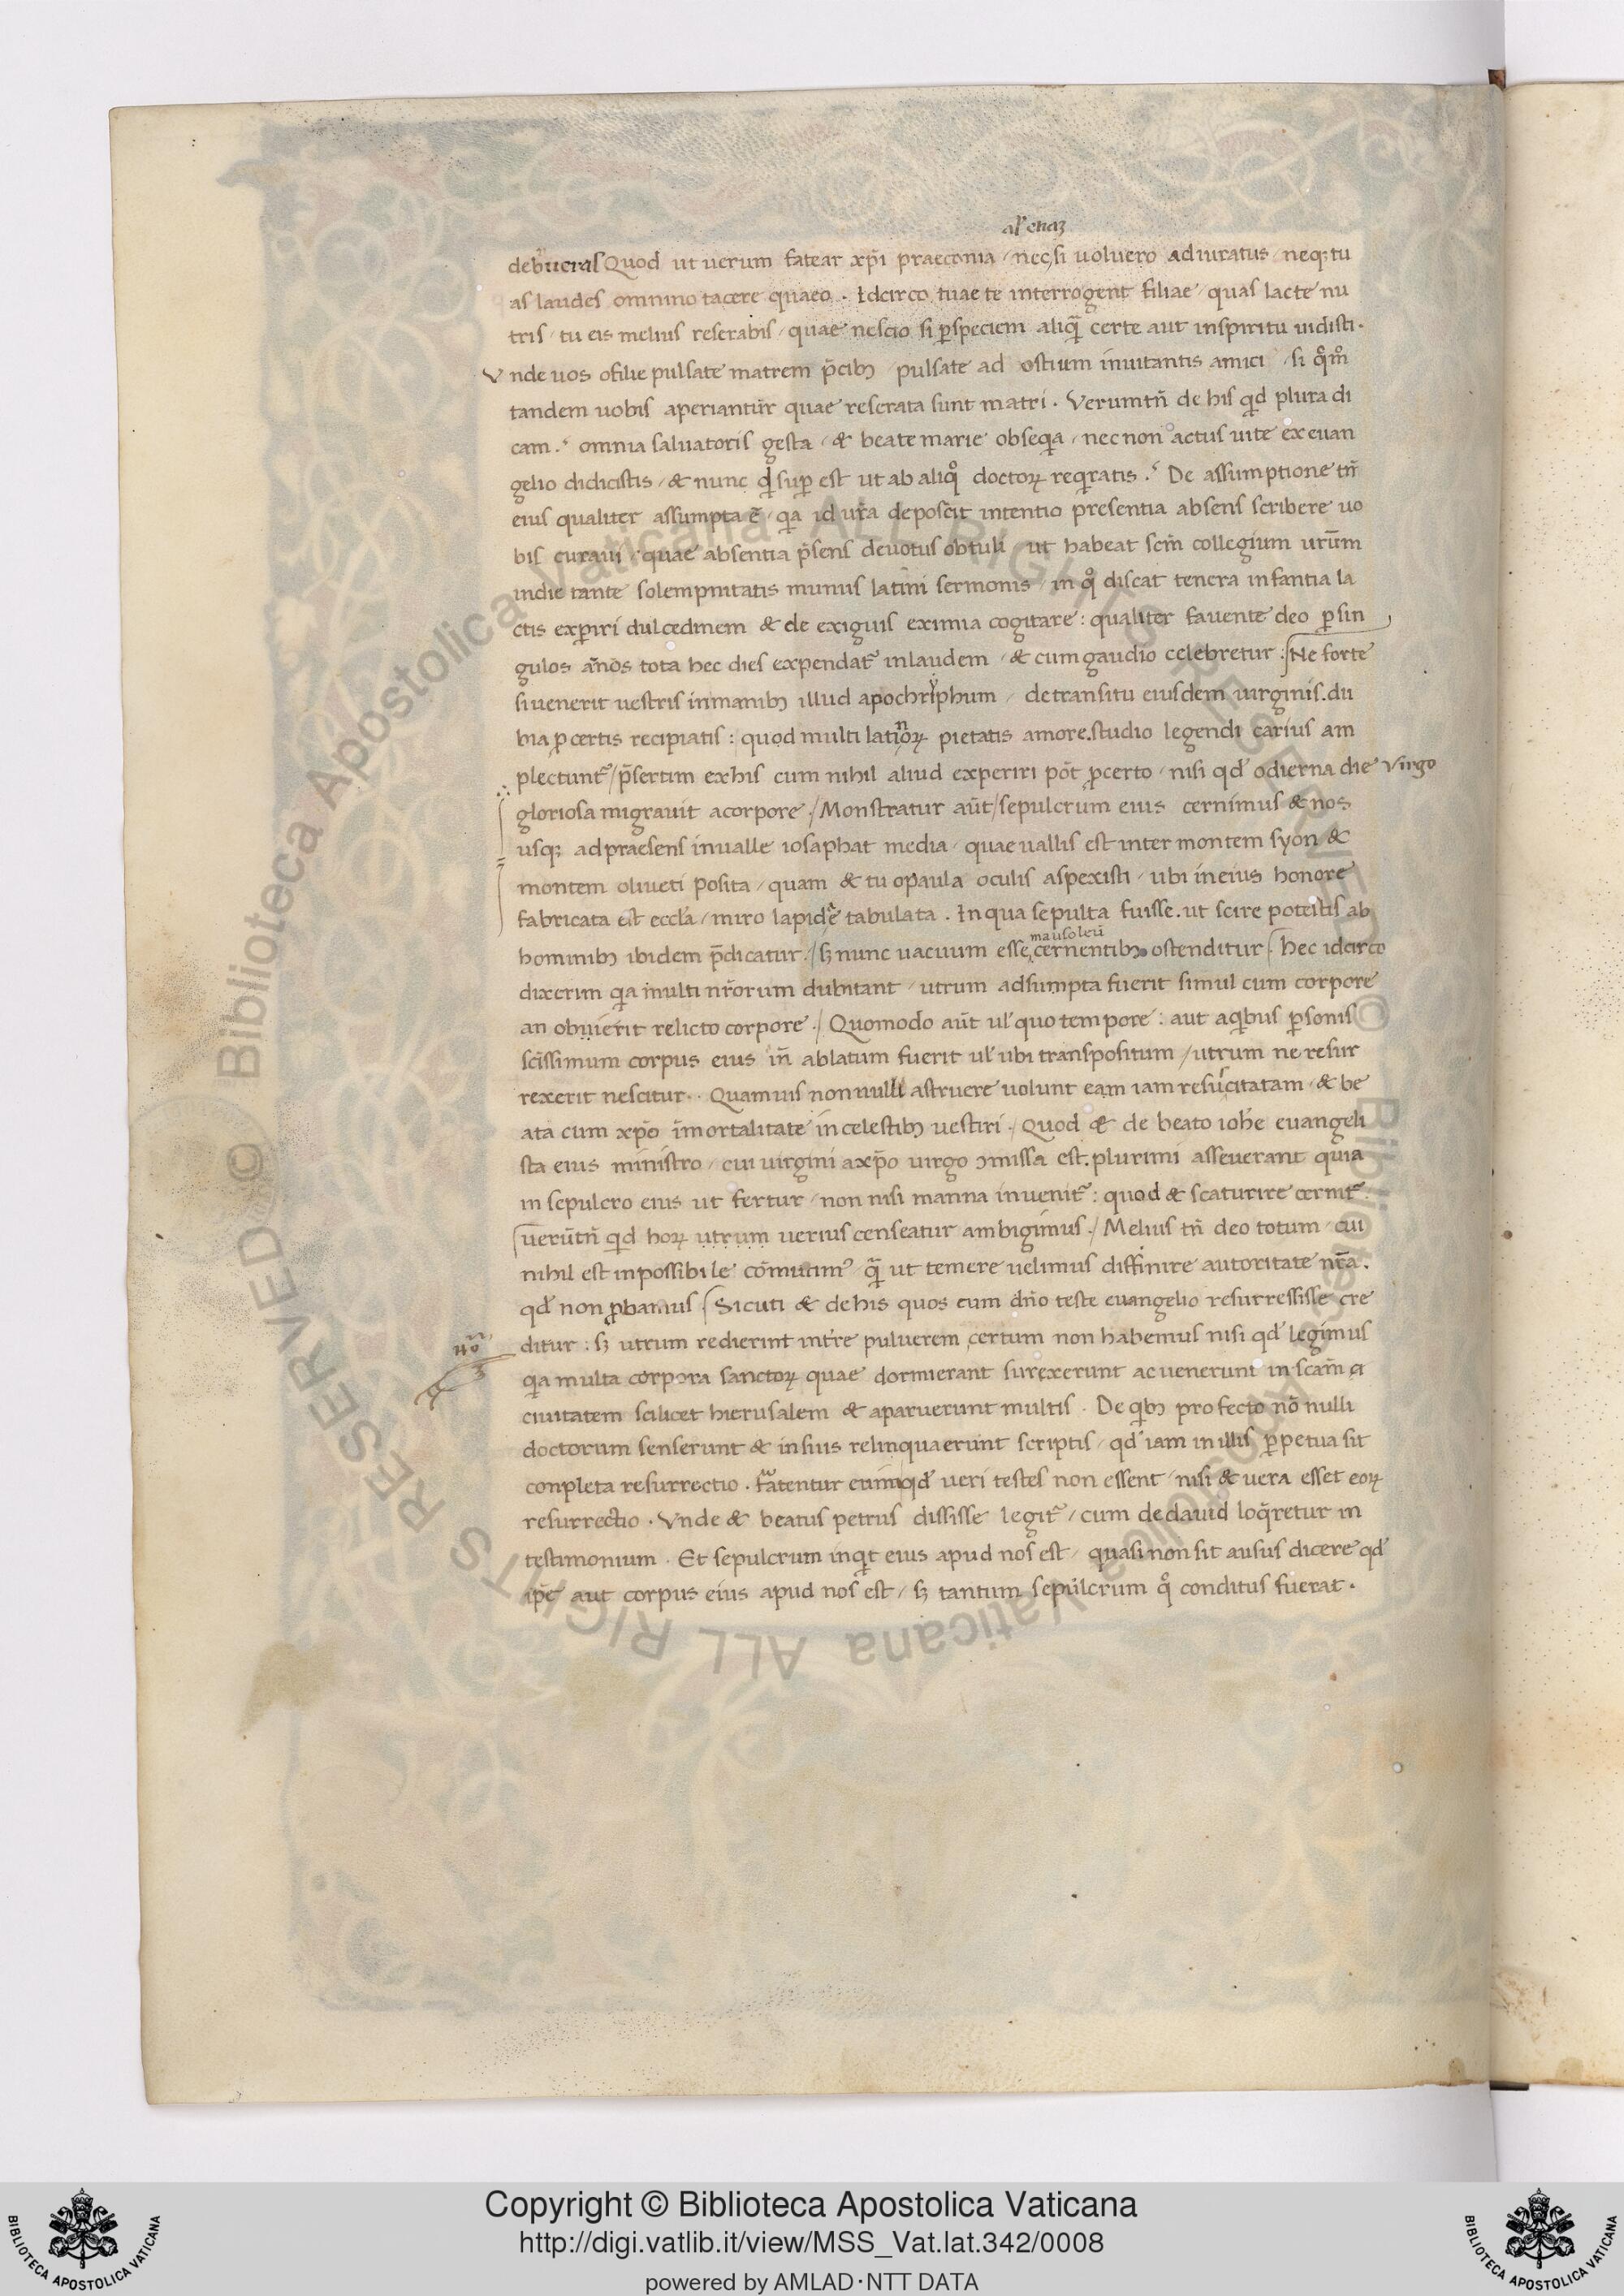 al' etiaz
debueras Quod ut uerum fatear xp̄i praeconia / nec si uoluero adiuratus / neq; tu
as laudes omnino tacere quaeo . Idcirco tuae te interrogent filiae / quas lacte nu
tris / tu eis melius reserabis / quae nescio si p̄speciem aliq̄ certe aut inspiritu uidisti .
Vnde uos ofilie pulsate matrem p̄cibꝫ / pulsate ad ostium inuitantis amici / si qͦmͦ
tandem uobis aperiantur quae reserata sunt matri . Verumtn̄ de his qd plura di
cam . omnia saluatoris gesta / & beate marie obseqa / nec non actus uite ex euan
gelio didicistis / & nunc qđ sup̄ est ut ab aliqͦ doctoꝝ reqratis . De assumptione tn̄
eius qualiter assumpta ē / qa id ur̄a deposcit intentio presentia absens scribere uo
bis curaui / quae absentia p̄sens deuotus obtuli / ut habeat scm̄ collegium urūm
indie tante solempnitatis munus latini sermonis / in qͦ discat tenera infantia la
ctis exꝑiri dulcedinem & de exiguis eximia cogitare : qualiter fauente deo ꝑ sin
gulos an̄os tota hec dies expendat̄ inlaudem / & cum gaudio celebretur : Ne forte
si uenerit uestris inmanibꝫ illud apochriphum / detransitu eiusdem uirginis . du
bia ꝓ certis recipiatis : quod multi latinoꝝ pietatis amore . studio legendi carius am
plectunt̄ / p̄sertim ex his cum nihil aliud experiri pōt ꝓ certo / nisi qđ odierna die Virgo
gloriosa migrauit acorpore . / Monstratur aūt / sepulcrum eius cernimus & nos
usq; adpraesens inualle iosaphat media / quae uallis est inter montem syon &
montem oliueti posita / quam & tu opaula oculis aspexisti / ubi in eius honore
fabricata est eccl'a / miro lapide tabulata . In qua sepulta fuisse . ut scire potestis ab
mausoleū
hominibꝫ ibidem p̄dicatur . / sꝫ nunc uacuum esse cernentibꝫ ostenditur . hec idcirco
dixerim qa multi nr̄orum dubitant / utrum adsumpta fuerit simul cum corpore
an obuierit relicto corpore . / Quomodo aūt ul' quo tempore : aut aqbus ꝑsonis
scīssimum corpus eius in̄ ablatum fuerit ul' ubi transpositum / utrum ne resur
rexerit nescitur . . Quamuis non nulli astruere uolunt eam iam resuscitatam / & be
ata cum xp̄o īmortalitate in celestibꝫ uestiri . / Quod & de beato ioħe euangeli
sta eius ministro / cui uirgini axp̄o uirgo ↄmissa est . plurimi asseuerant quia
in sepulcro eius ut fertur / non nisi manna inuenit̄ : quod & scaturire cernit̄ .
uerūtn̄ qd hoꝝ utrum uerius censeatur ambigimus . / Melius tn̄ deo totum / cui
nihil est inpossibile cōmutim᾿ / q̄ ut temere uelimus diffinire autoritate nr̄a .
qđ non ꝓbamus . Sicuti & de his quos cum dn̄o teste euangelio resurressisse cre
nōᵗᵃ
ditur : sꝫ utrum redierint int̄re puluerem certum non habemus nisi qđ legimus
qa multa corpora sanctoꝝ quae dormierant surexerunt ac uenerunt in scam̄ ci
ciuitatem scilicet hierusalem & aparuerunt multis . De qbꝫ profecto nō nulli
doctorum senserunt & in suis relinquaerunt scriptis / qđ iam in illis ꝑpetua sit
conpleta resurrectio . fatentur enim qđ ueri testes non essent / nisi & uera esset eoꝝ
resurrectio . Vnde & beatus petrus dississe legit̄ / cum de dauid loq̄retur in
testimonium . Et sepulcrum inqt eius apud nos est / quasi non sit ausus dicere qđ
ip̄e aut corpus eius apud nos est / sꝫ tantum sepulcrum qͦ conditus fuerat .
Copyright © Biblioteca Apostolica Vaticana
http://digi.vatlib.it/view/MSS_Vat.lat.342/0008
powered by AMLAD·NTT DATA
BIBLIOTECA APOSTOLICA VATICANA
BIBLIOTECA APOSTOLICA VATICANA
© Biblioteca Apostolica Vaticana ALL RIGHTS RESERVED
© Biblioteca Apostolica Vaticana ALL RIGHTS RESERVED